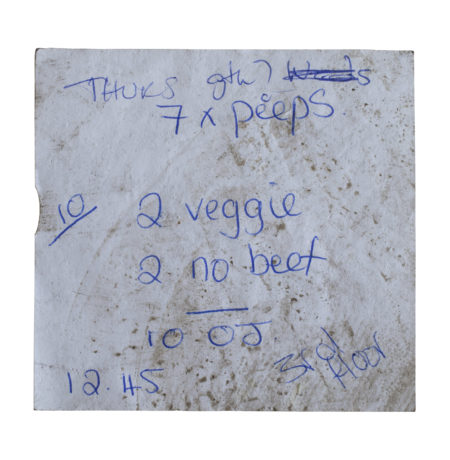 THURS 9th?
7 x peeps.
10/
2 veggie
2 no beef
10 OJ
12.45
3rd floor